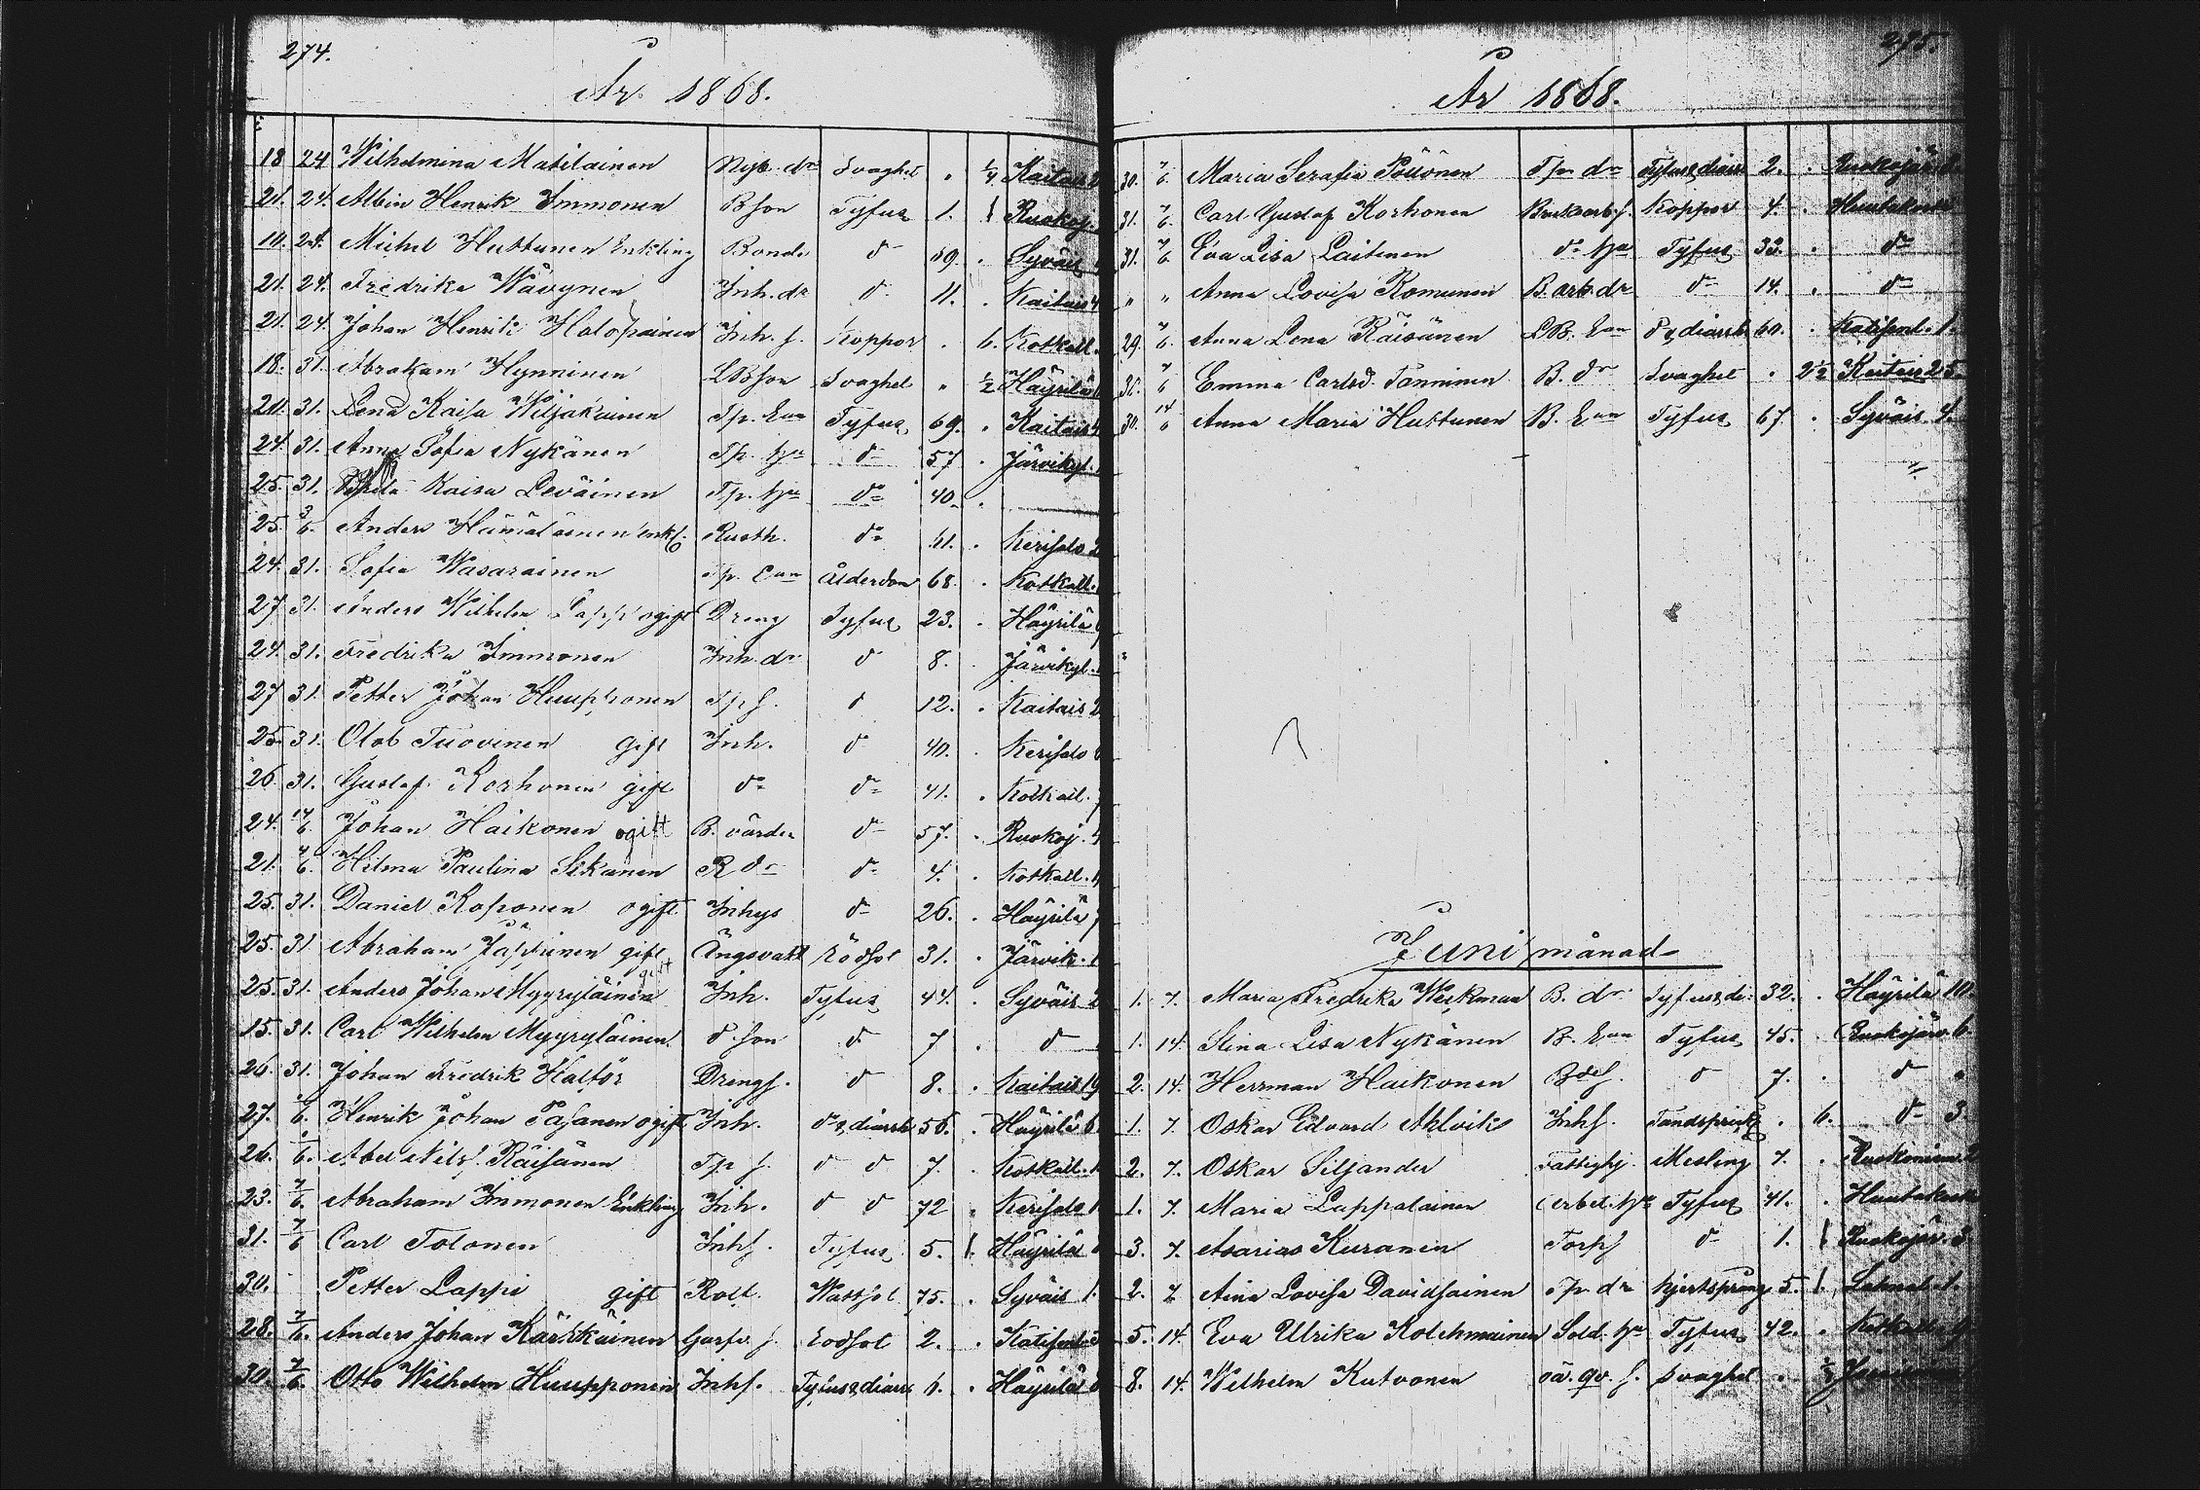 274.
År 1868.
18 24 Wilhelmina Matilainen dr Svaghet . 1/4 Kaitais
21. 24. Albin Henrik Immonen Bson Tyfus 1. 1 Ruokoj.
10. 24. Michel Huttunen Enkling Bonde d 69. . Syväis
21. 24. Fredrika Wäyynen Inh. dr d 11. . Kaitais 4
21. 24. Johan Henrik Halopainen Inh. s. Koppor . 6. Kotkall.
18. 31. Abraham Hynninen LBson Svaghet " 1/2 Häyrilä
20. 31. Lena Kaisa Wiljakainen Tp. Enn Tyfus 69. . Kaitais
24. 31. Anna Sofia Nykänen Tp. hu d 57 . Järvikyl.
25. 31. Kaisa Leväinen Tp. hu do 40 .
25. 3/6. Anders Hämäläinen enkl. Rusth. do 41. . Kerisalo 2
24. 31. Sofia Wasarainen Tp. Enn ålderdom 68. . Kotkall.
27 31. Anders Wilhelm Lappi ogift Dreng Tyfus 23. . Häyrilä
24. 31. Fredrika Immonen Inh. dr d 8. . Järvikyl.
27 31. Petter Johan Huupponen Tp s. d 12. . Kaitais 2
25. 31. Olof Tuovinen gift Inh. d 40. . Kerisalo
26 31. Gustaf Korhonen gift do do 41. . Kotkall.
24. 14/6. Johan Haikonen ogift B. värde d 57. . Ruokoj. 4
21. 7/6. Hilma Paulina Sikanen R dr d 4. . Kotkall.
25. 31. Daniel Koponen ogift Inhys d 26. . Häyrilä 7
25. 31 Abraham Jappinen gift Ängsvakt Rödsot 31. . Järvik. 1
25. 31. Anders Johan Myyryläinen gift Inh. Tyfus 44. . Syväis 2
15. 31. Carl Wilhelm Myyryläinen d. son d 7 . d
26. 31. Johan Fredrik Halfor Drengs. d 8. . Kaitais 19
27. /6. Henrik Johan Pasanen ogift Inh. do & diarrh 56. . Häyrilä 6
26. /6. Abel Nils Räisänen Tp s. d d 7. . Kotkall.
23. 7/6. Abraham Immonen Enkling Inh. d d 72 . Kerisalo
31. 7/6 Carl Tolonen Inhs. Tyfus 5. 1. Häyrilä
30. Petter Lappi gift Rott. Wattsot 75. . Syväis 1.
28. 7/6. Anders Johan Kärkkäinen Garfv. s. Rödsot 2. . Kotisent.
30. 7/6. Otto Wilhelm Huupponen Inhs. Tyfus & diarr 6. . Häyrilä
275.
År 1868.
30. 7/6. Maria Serafia Pöllönen Tp dr Tyfus & diarr 2. . Ruokojärv
31. 7/6. Carl Gustaf Korhonen Bruksarb. s. Koppor 4. . Huutokoski
31. 7/6. Eva Lisa Laitinen do hu Tyfus 33. . do
" " Anna Lovisa Komunen B. arb. dr do 14. . do
29. 7/6. Anna Lena Räisänen LB. Enn d & diarrh 60. . Kotisent. 1.
7/6 Emma Carlsd. Tanninen B. dr Svaghet . 2 1/2 Keiteis 25.
30. 14/6 Anna Maria Huttunen B. Enn Tyfus 67 . Syväis. 4.
Juni månad
1. 7. Maria Fredrika Weckman B. dr Tyfus & di: 32. . Häyrilä 10.
1. 14. Stina Lisa Nykänen B. Enn Tyfus 45. . Ruokojärv. 6.
2. 14. Herrman Haikonen Bdes. d 7. . d "
1. 7. Oskar Edvard Ahlvik Inhs. Tandsprick . 6. d 3.
2. 7. Oskar Siljander Fattighj. Mesling 7. . Ruokoniem.
1. 7. Maria Lappalainen Arbet. hu Tyfus 41. . Huutokoski
3. 7. Asarias Kuranen Torps d 1. 1 Ruokojär. 3.
2. 7. Aina Lovisa Davidsainen Tp dr hjertsprång 5. 1. 1.
5. 14. Eva Ulrika Kolehmainen Sold. hu Tyfus 42. . Kotkall.
8. 14. Wilhelm Kutvonen oä. qv. s. Svaghet . 1/2